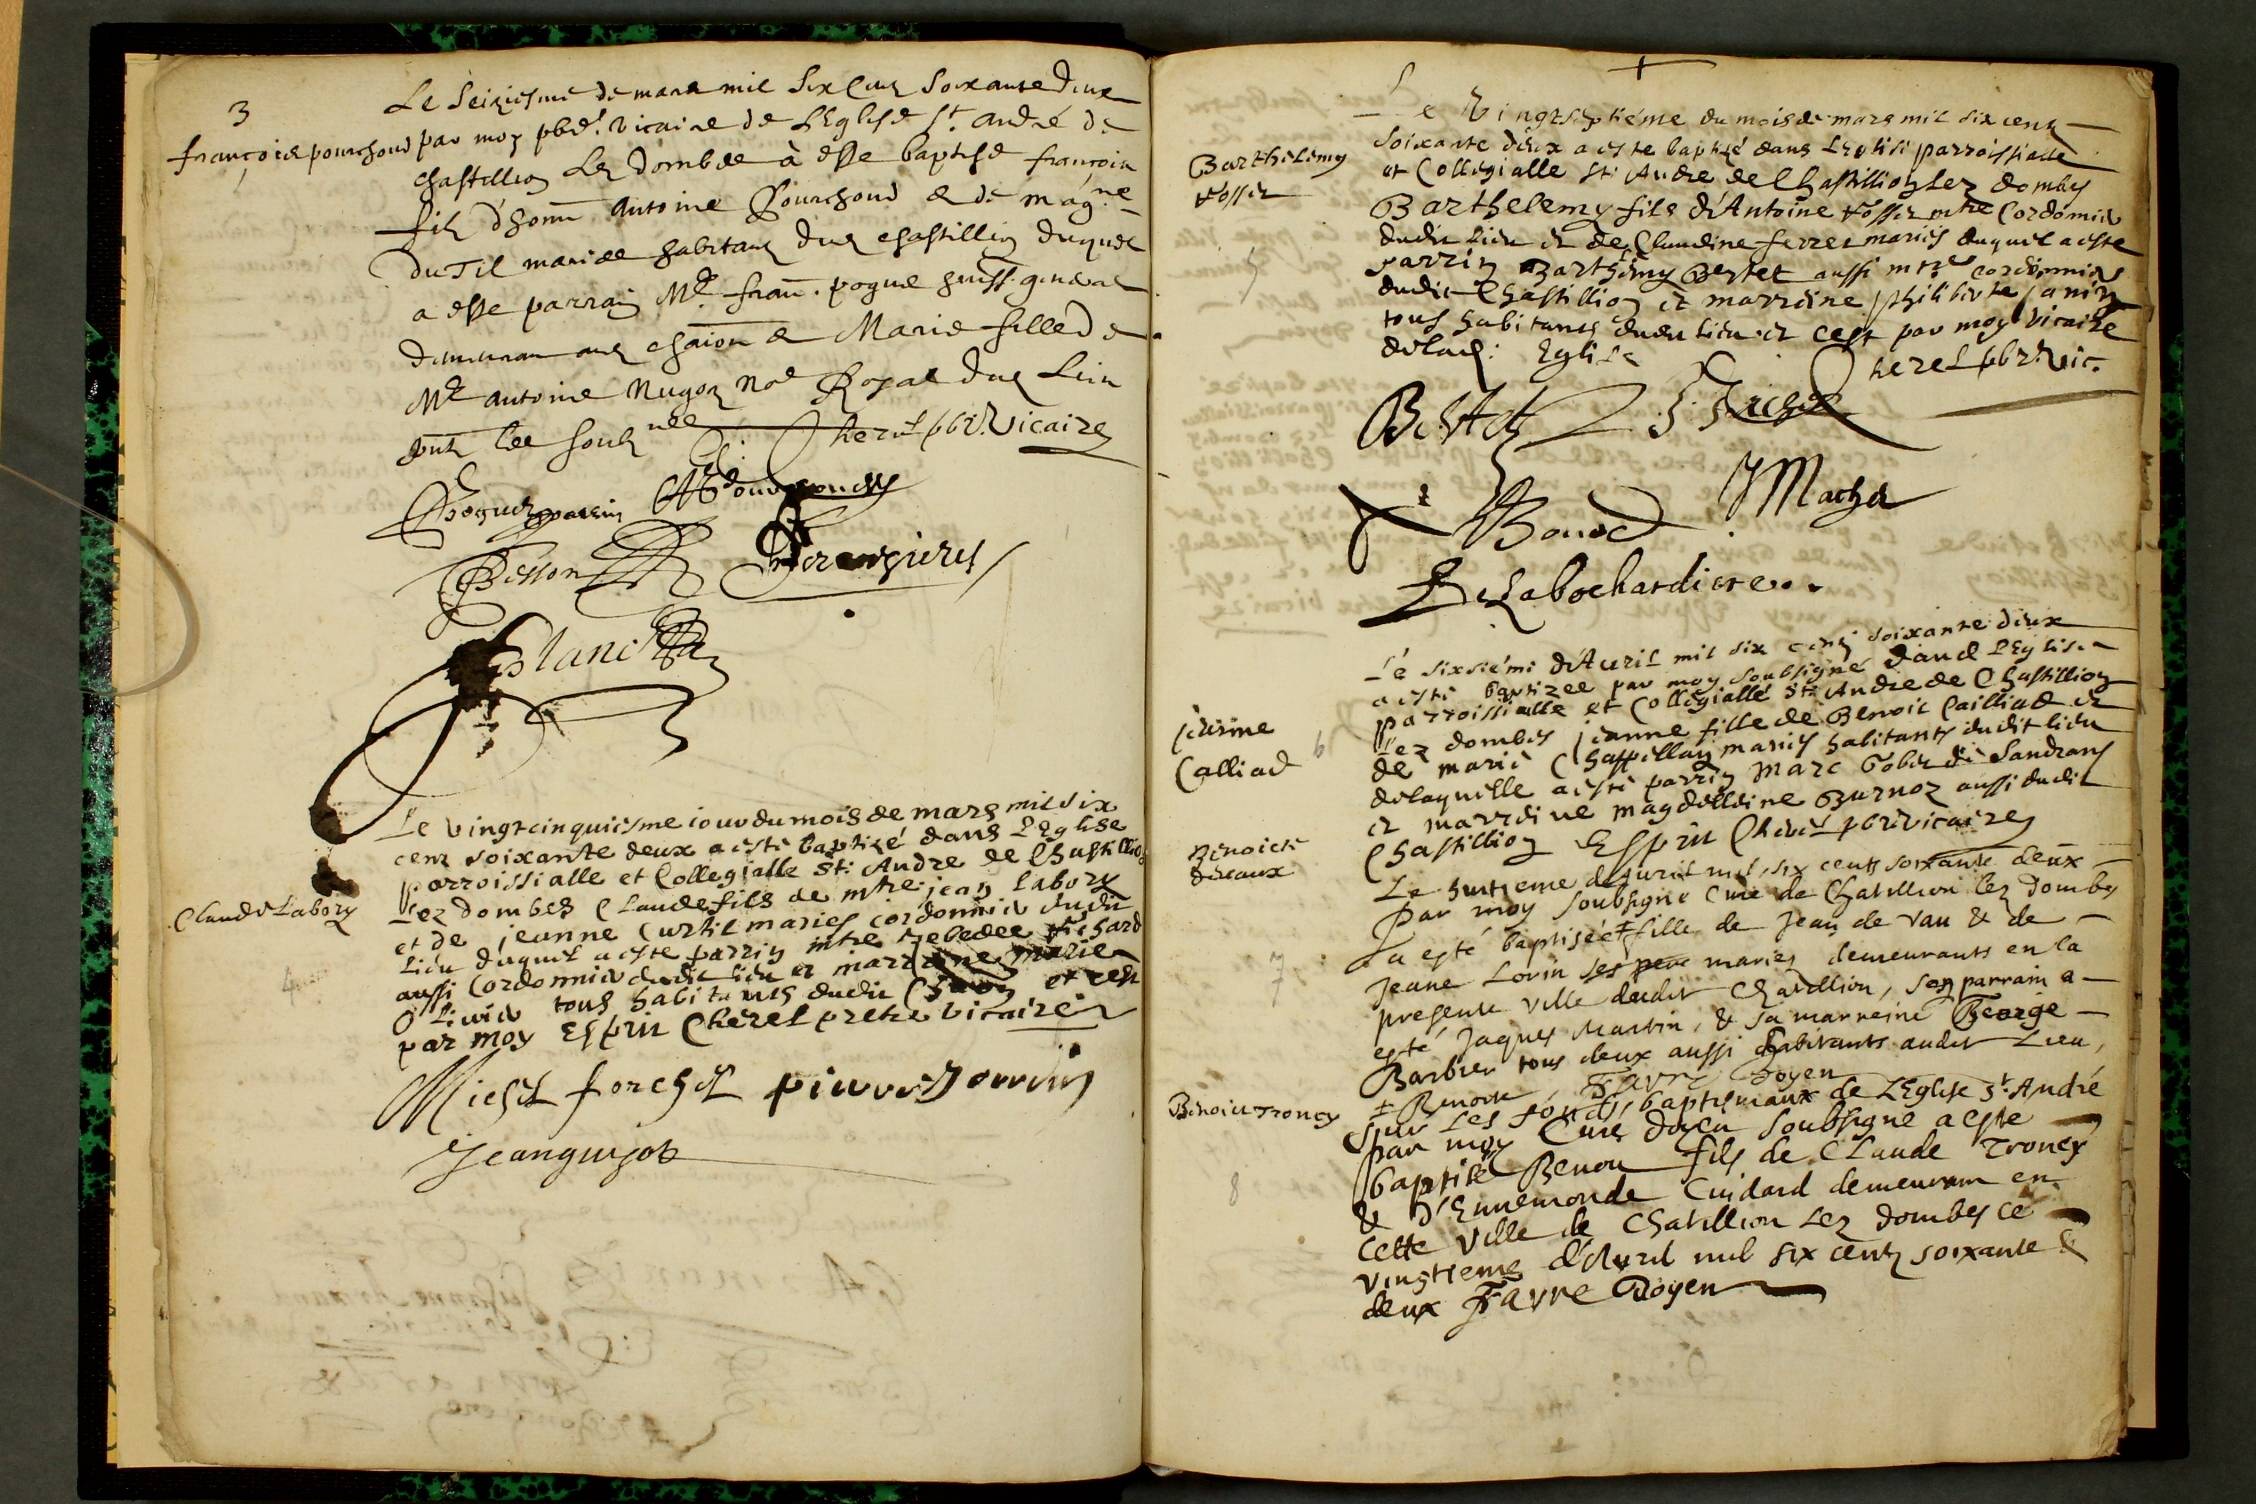 3
Le Seiziesme de mars mil six cens soixante deux
françois pourchoud par moy pbre. vicaire de L'Eglise St. André de
chastillon Lez dombes à esté baptisé françois
fils d'honn Antoine Pourchoud & de magne
Dutil mariés habitans dud chastillon duquel
a esté parrain Mr. fran. pogue general
demeurant aud & Marie fille de
Me Antoine Nugoz Noe Royal dud Lieu
Cherel pbr. Vicaire
parrin
Besson
Le vingtcinquiesme iour du mois de mars mil six
cent soixante deux a esté baptizé dans L'Eglise
parroissialle et Collegialle St. Andre de Chastillion
Claude Labory
Lez dombes Claude fils de mtre jean Labory
et de jeanne Curtil mariés cordonnier dudit
Lieu duquel a esté parrin mtre Zebedee Richard
4
aussi Cordonnier dudit Lieu et marraine marie
Olivier tous habitants dudit et cest
par moy Esprit Cherel pretre vicaire
Michel forchet pierre
Jean guijot
Le Vingtseptiéme du mois de mars mil six cent
soixante deux a esté baptizé dans L'Eglise parroissialle
Barthelemy
et Collegialle St. Andre de Chastillion Lez dombes
Barthelemy fils d'Antoine mtre Cordonnier
dudit Lieu et de Claudine ferret mariés duquel a esté
5
parrin Barthemy Bertet aussi mtre cordonnier
dudit Chastillion et marraine philiberte Janin
tous habitants dudit Lieu et cest par moy Vicaire
de lad: Eglise Cherel pbr. Vic.
Bertet
Bouvé
J Macha
De Labochardiere
Le sixsiémé d'Avril mil six cents soixante deux
a esté baptizee par moy soubsigné dans L'Eglise
parroissialle et Collegialle St. Andre de Chastillion
jeanne
Calliad
6
Lez dombes jeanne fille de Benoit Cailliad et
de marie Chappellan mariés habitants dudit lieu
de laquelle a esté parrin Marc Gobet de Sandrans
et marraine magdelleine Burnoz aussi dudit
Chastillion Esprit Cherel pbr. vicaire
Benoicte
deuaux
Le huitieme d'Avril mil six cents soixante deux
Par moy soubsigne Curé de Chatillion lez dombes
a esté baptiséé ‡ fille de Jean de Vau & de
Jeane Lorin mariez demeurants en la
7
presente ville dudit Chatillion, son parrain a
esté Jaques Martin, & sa marreine George
Barbier tous deux aussi habitants audit Lieu,
‡ Benoite, Favre Doyen
Benoit Troncy
Sur Les fonds baptismaux de L'Eglise St. André
par moy Curé doyen Soubsigné a esté
baptisé Benoit fils de Claude Troncy
8
& d'Ennemonde Cuidard demeurant en
Cette ville de Chatillion Lez dombes ce
vingtieme d'Avril mil six cents soixante &
deux Favre Doyen